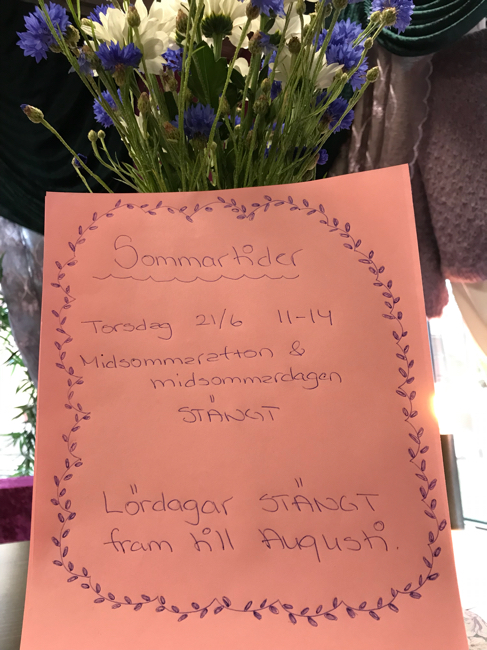 Sommartider
Torsdag 21/6 11-14
Midsommarafton &
midsommardagen
STÄNGT
Lördagar STÄNGT
fram till Augusti.